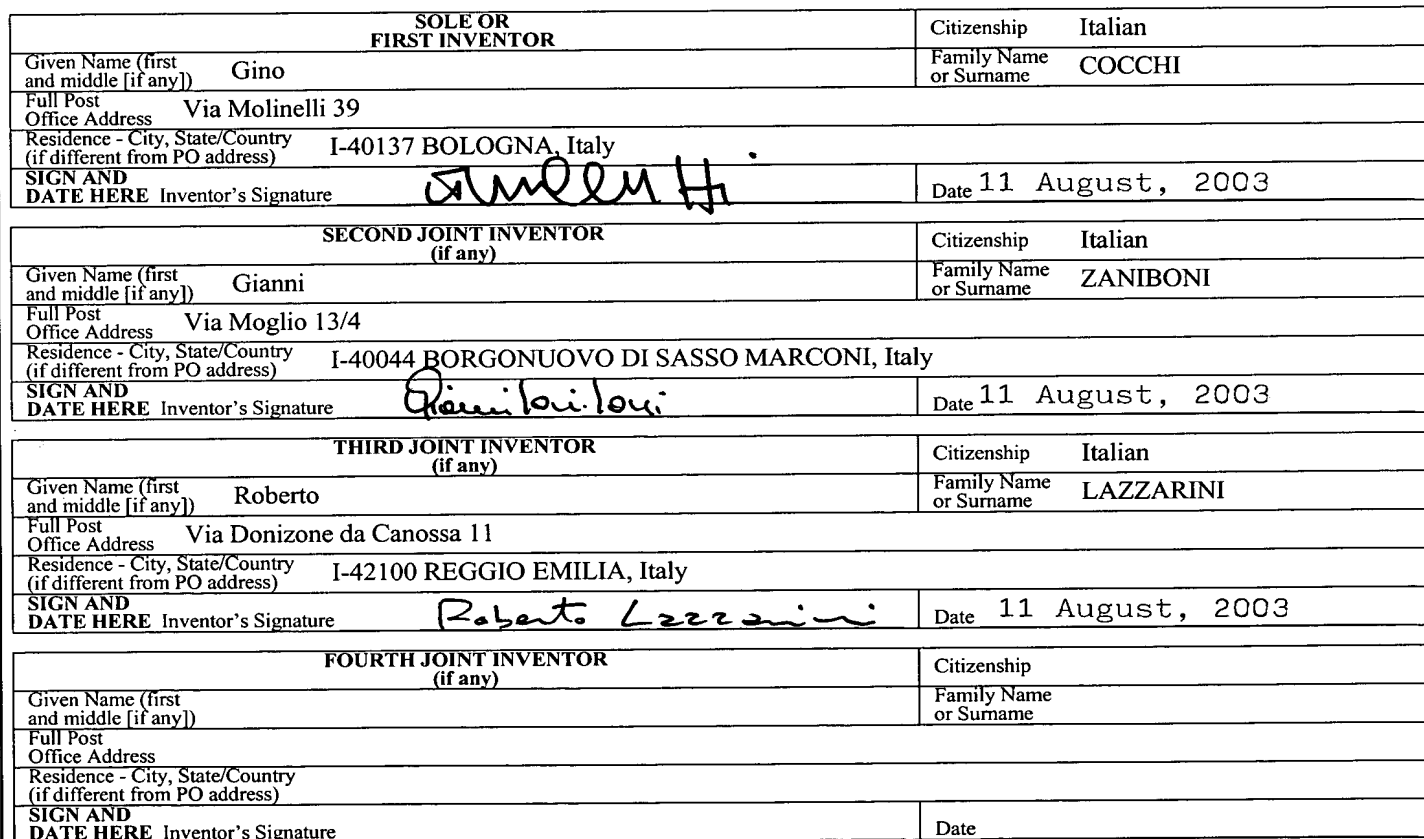 SOLE OR
FIRST INVENTOR
Citizenship Italian
Given Name (first
and middle [if any]) Gino
Family Name
or Surname COCCHI
Full Post
Office Address Via Molinelli 39
Residence - City, State/Country
(if different from PO address) I-40137 BOLOGNA, Italy
SIGN AND
DATE HERE Inventor's Signature
Date 11 August, 2003
SECOND JOINT INVENTOR
(if any)
Citizenship Italian
Given Name (first
and middle [if any]) Gianni
Family Name
or Surname ZANIBONI
Full Post
Office Address Via Moglio 13/4
Residence - City, State/Country
(if different from PO address) I-40044 BORGONUOVO DI SASSO MARCONI, Italy
SIGN AND
DATE HERE Inventor's Signature
Date 11 August, 2003
THIRD JOINT INVENTOR
(if any)
Citizenship Italian
Given Name (first
and middle [if any]) Roberto
Family Name
or Surname LAZZARINI
Full Post
Office Address Via Donizone da Canossa 11
Residence - City, State/Country
(if different from PO address) I-42100 REGGIO EMILIA, Italy
SIGN AND
DATE HERE Inventor's Signature Roberto Lazzarini
Date 11 August, 2003
FOURTH JOINT INVENTOR
(if any)
Citizenship
Given Name (first
and middle [if any])
Family Name
or Surname
Full Post
Office Address
Residence - City, State/Country
(if different from PO address)
SIGN AND
DATE HERE Inventor's Signature
Date